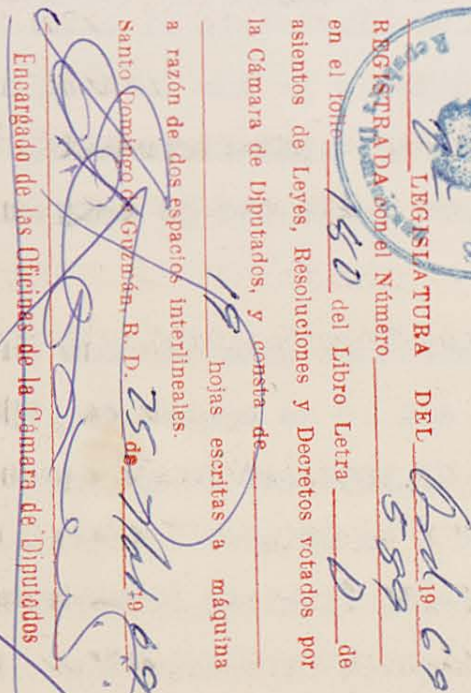 2a LEGISLATURA DEL Ord 1969
REGISTRADA con el Número 559
en el folio 180 del Libro Letra D de
asientos de Leyes, Resoluciones y Decretos votados por
la Cámara de Diputados, y consta de
19 hojas escritas a máquina
a razón de dos espacios interlineales.
Santo Domingo de Guzmán, R. D. 25 de 1969
Encargado de las Oficinas de la Cámara de Diputados